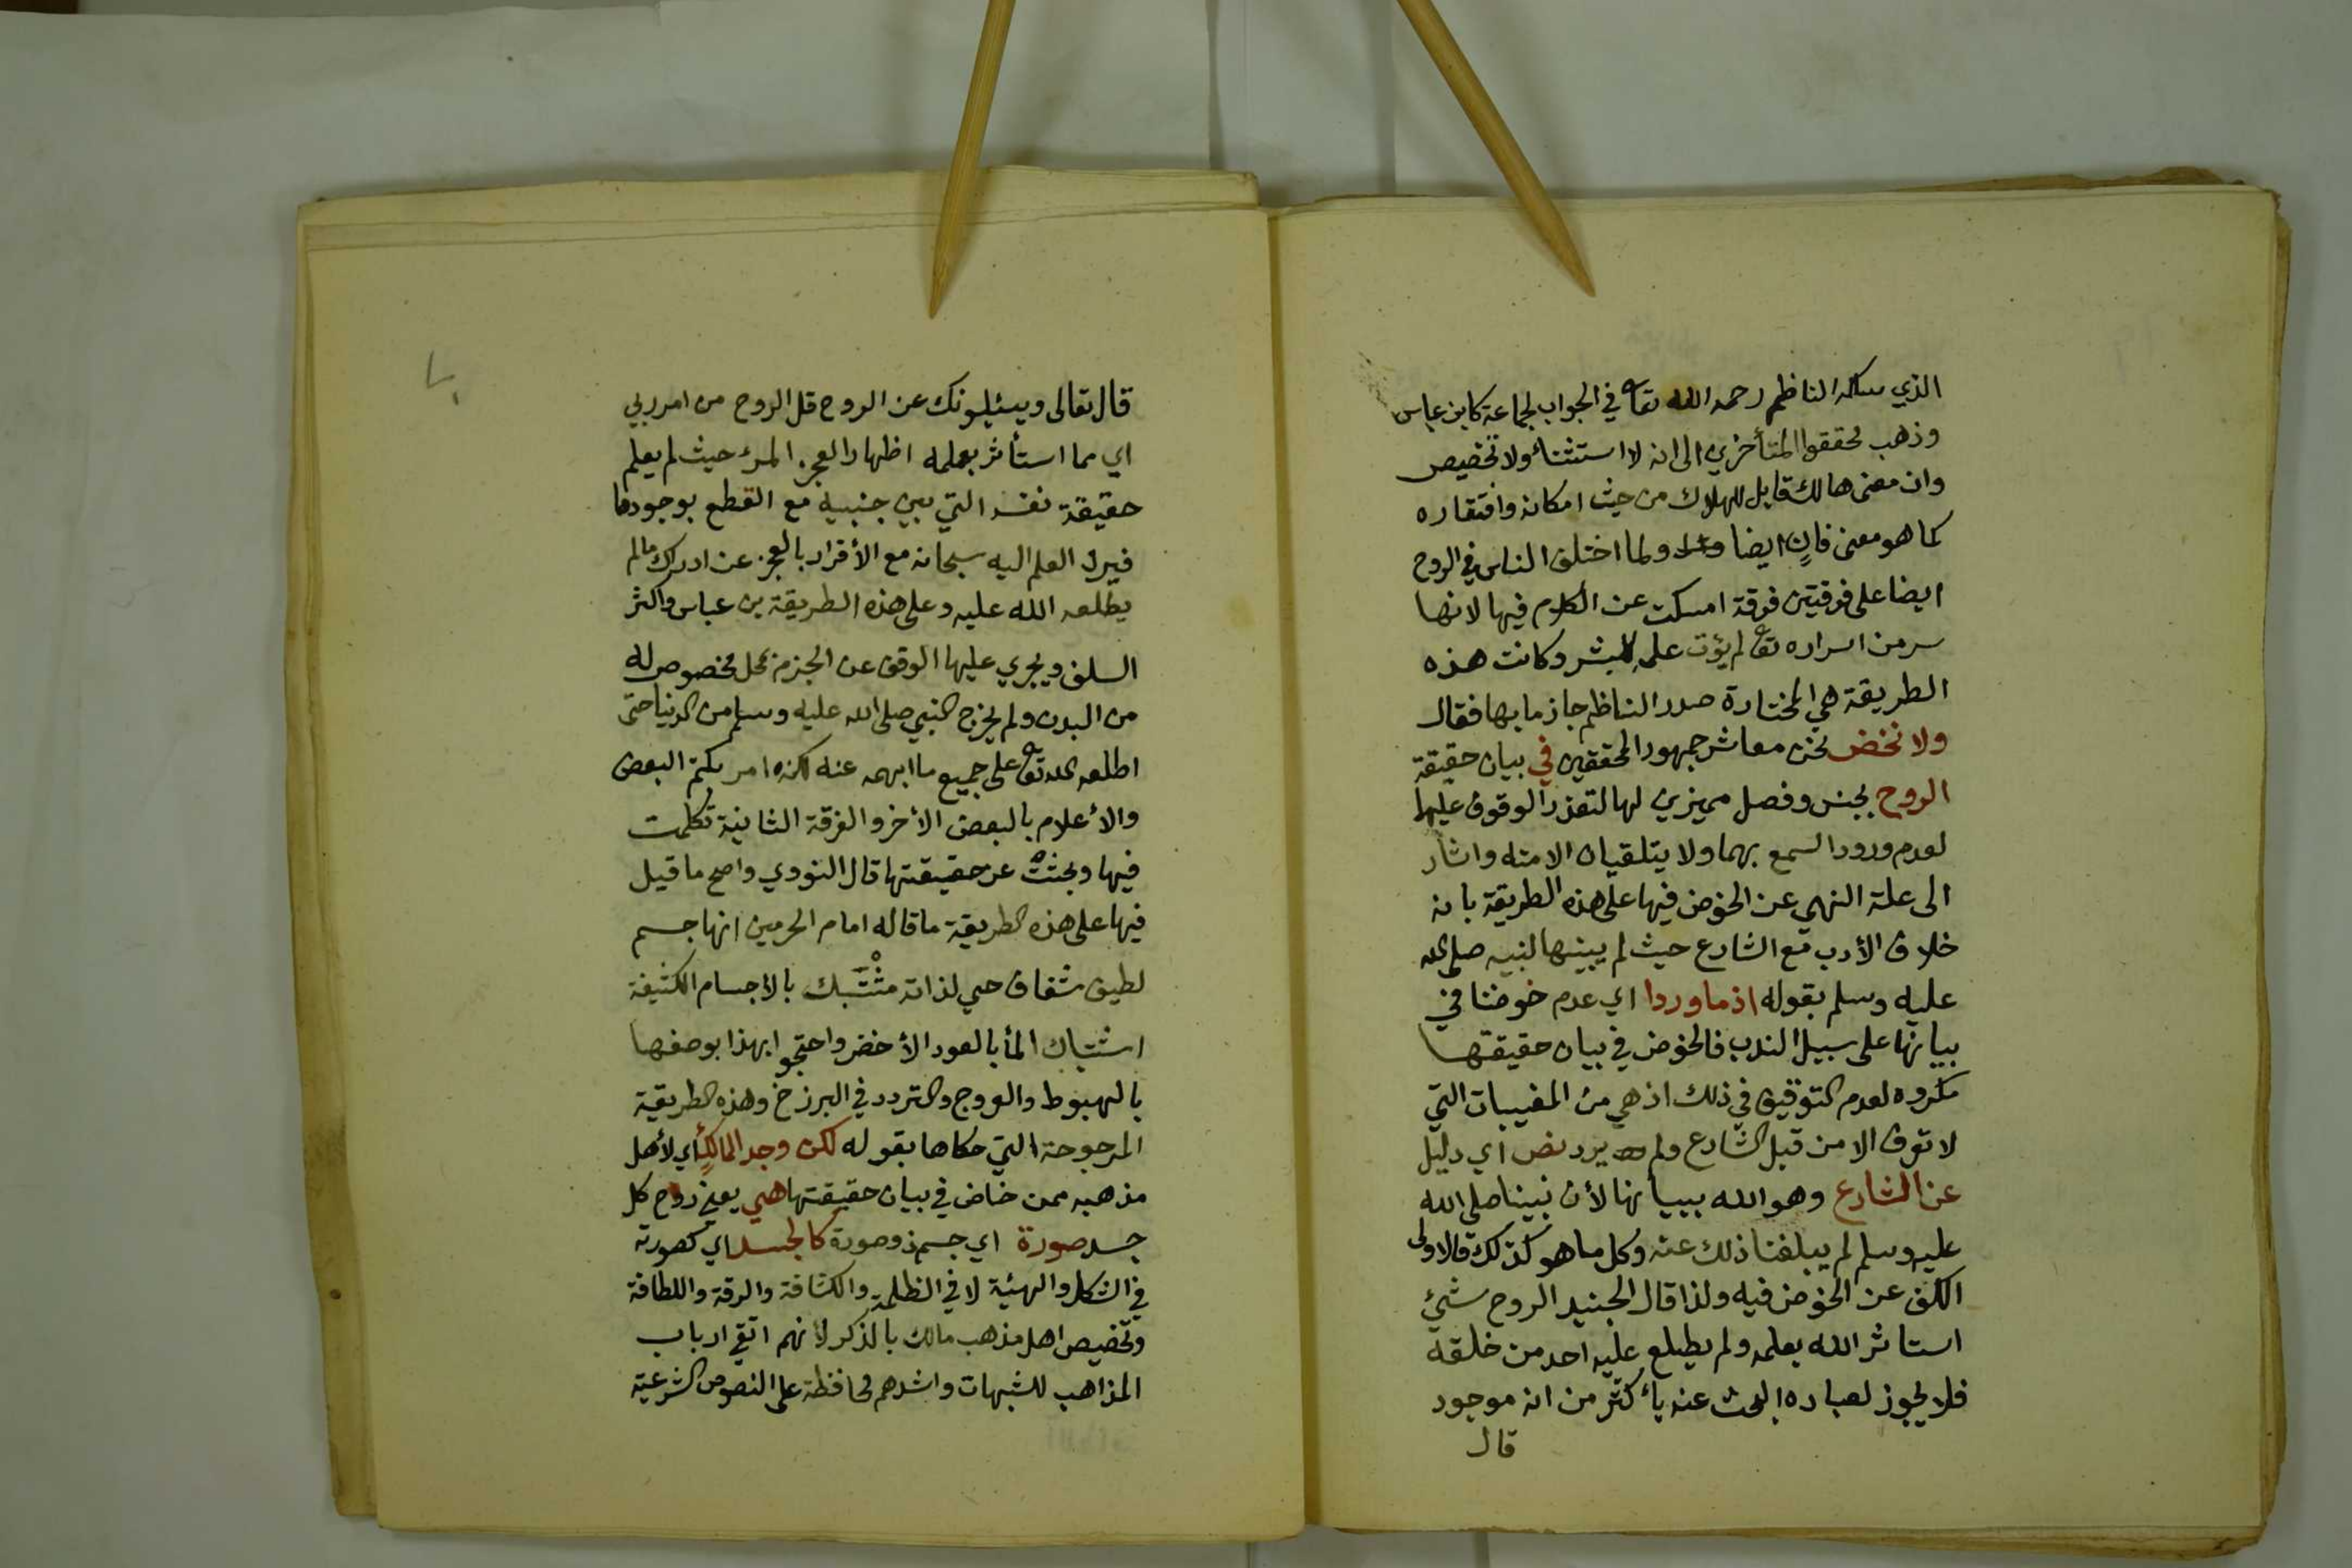 الذي سلكه الناظم رحمه الله تعا في الجواب لجماعة كابن عباس
وذهب محققوا المتأخرين الى انه لا استثناء ولا تخصيص
وان معنى هالك قابل للهلاك من حيث امكانه وافتقاره
كما هو معنى فانٍ ايضا ولما اختلف الناس في الروح
ايضا على فرقتين فرقة امسكت عن الكلام فيها لانها
سر من اسراره تعا لم يؤت علمه البشر وكانت هذه
الطريقة هي المختارة صدر الناظم جازما بها فقال
ولا نخض نحن معاشر جمهور المحققين في بيان حقيقة
الروح بجنس وفصل مميزين لها لتعذر الوقوف عليها
لعدم ورود السمع بهما ولا يتلقيان الا منه واشار
الى علة النهي عن الخوض فيها على هذه الطريقة بانه
خلاف الأدب مع الشارع حيث لم يبينها لنبيه صلى الله
عليه وسلم بقوله اذ ما وردا اي عدم خوضنا في
بيانها على سبيل الندب فالخوض في بيان حقيقتها
مكروه لعدم التوقيف في ذلك اذ هي من المغيبات التي
لا تعرف الا من قبل الشارع ولم يرد نص اي دليل
عن الشارع وهو الله ببيانها لأن نبينا صلى الله
عليه وسلم لم يبلغنا ذلك عنه وكل ما هو كذلك فالاولى
الكف عن الخوض فيه ولذا قال الجنيد الروح شيئ
استاثر الله بعلمه ولم يطلع عليه احد من خلقه
فلا يجوز لعباده البحث عنه بأكثر من انه موجود
قال
قال تعالى ويسئلونك عن الروح قل الروح من امر ربي
اي مما استأثر بعلمه اظهارا لعجز المرء حيث لم يعلم
حقيقة نفسه التي بين جنبيه مع القطع بوجودها
فيرد العلم اليه سبحانه مع الأقرار بالعجز عن ادراك ما لم
يطلعه الله عليه وعلى هذه الطريقة بن عباس واكثر
السلف ويجري عليها الوقف عن الجزم بمحل مخصوص له
من البدن ولم يخرج النبي صلى الله عليه وسلم من الدنيا حتى
اطلعه الله تعا على جميع ما ابهمه عنه لكنه امر بكتم البعض
والأعلام بالبعض الأخر والفرقة الثانية تكلمت
فيها وبحثت عن حقيقتها قال النووي واصح ما قيل
فيها على هذه الطريقة ما قاله امام الحرمين انها جسم
لطيف شفاف حي لذاته مشتبك بالاجسام الكثيفة
اشتباك المأ بالعود الأخضر واحتجوا بهذا بوصفها
بالهبوط والعروج والتردد في البرزخ وهذه الطريقة
المرجوحة التي حكاها بقوله لكن وجد المالكٍ أي لأهل
مذهبه ممن خاض في بيان حقيقتها هي يعني روح كل
جسد صورة اي جسم ذو صورة كالجسد اي كصورته
في الشكل والهيئة لا في الظلمة والكثافة والرقة واللطافة
وتخصيص اهل مذهب مالك بالذكر لأنهم اتقى ارباب
المذاهب للشبهات واشدهم محافظة على النصوص الشرعية